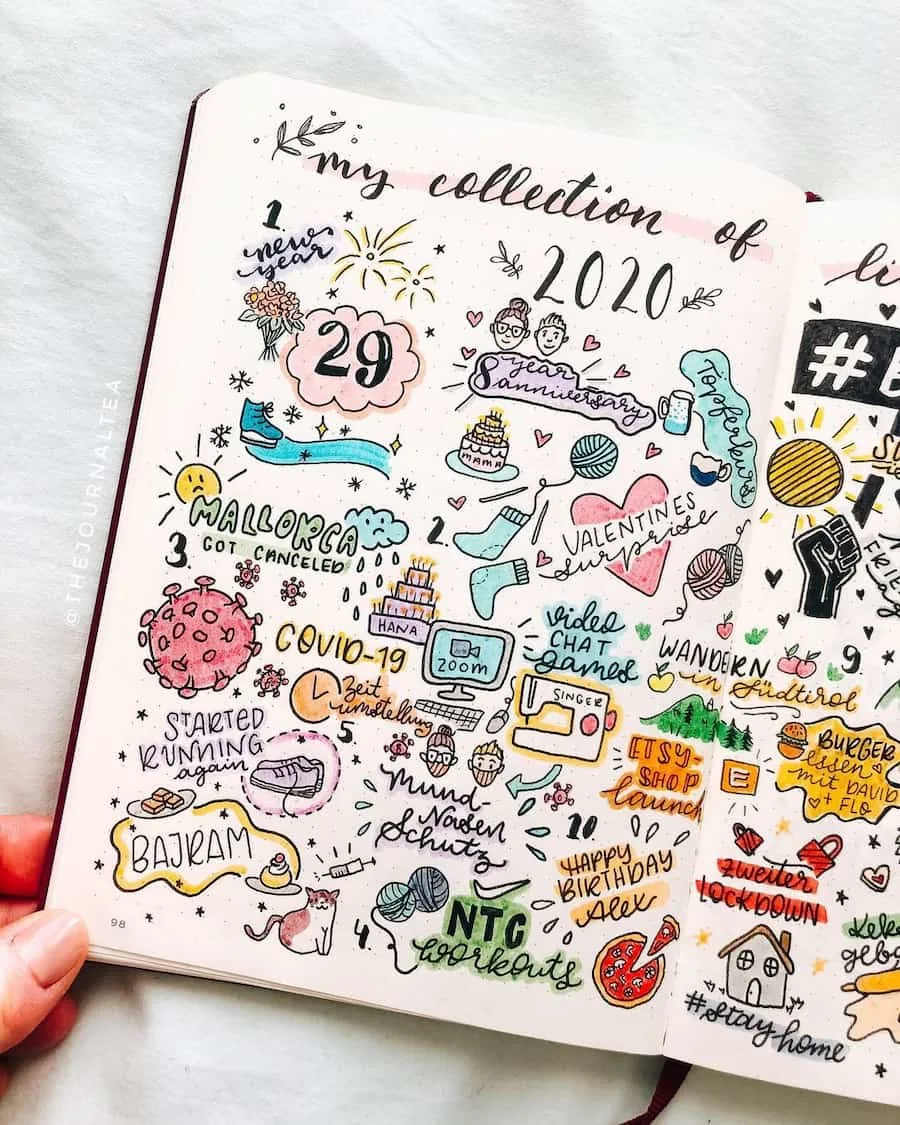 my collection of
2020
li
1.
new
year
29
8 year
anniversary
Töpferkurs
MAMA
2.
VALENTINES
surprise
MALLORCA
GOT CANCELED
3.
HANA
COVID-19
zoom
video
CHAT
games
Zeit
umstellung
SINGER
WANDERN
in Südtirol
9.
STARTED
RUNNING
again
5.
Mund-
Nasen
Schutz
ETSY-
SHOP
launch
E
BURGER
essen
mit DAVID
+ FLO
BAJRAM
10
HAPPY
BIRTHDAY
Alex
4.
NTC
workouts
zweiter
LOCKDOWN
#stay home
98
@THEJOURNALTEA